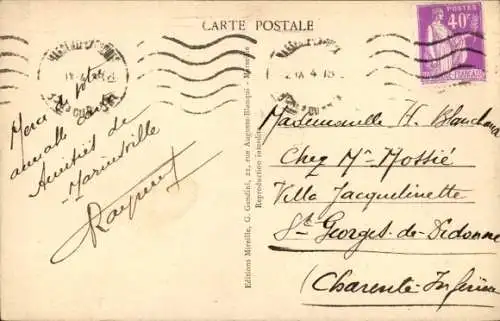 CARTE POSTALE
40c
Merci de votre
aimable carte
Amitiés de
Marinville
Editions Mireille, G. Gandini, 22, rue Auguste-Blanqui - Marseille
Reproduction interdite
Mademoiselle H. Blanchard
Chez Mr Mossié
Villa Jacquelinette
St Georges-de-Didonne
(Charente-Inférieure